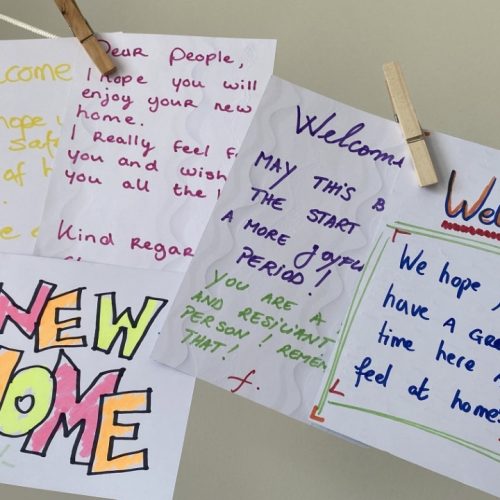 Dear People,
I hope you will
enjoy your new
home.
I Really feel
you and wish
you all the
Kind Regar
hope
safe
of
NEW
HOME
Welcome
MAY THIS B
THE START
A MORE JOYFU
PERIOD!
YOU ARE A
AND RESILIANT
PERSON! REMEM
THAT!
f.
Wel
We hope
have A GREA
time here
feel at home